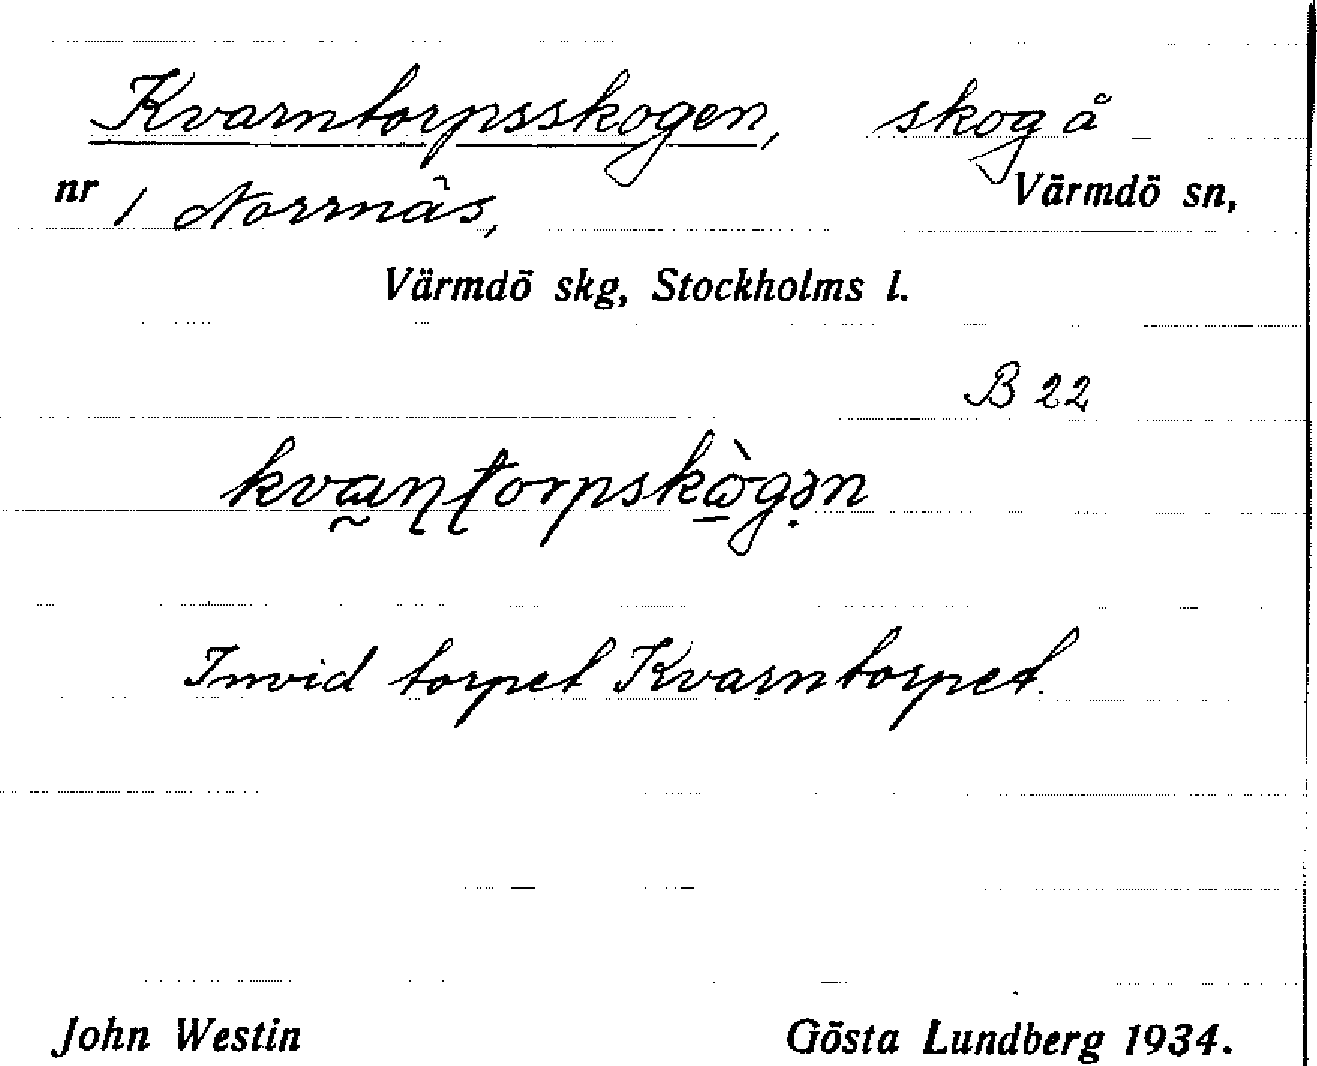 Kvarntorpsskogen, skog å
nr 1 Norrnäs, Värmdö sn,
Värmdö skg, Stockholms l.
B 22
kva̰ɳʈorpskɷ̠̀gə̣n
Invid torpet Kvarntorpet.
John Westin Gösta Lundberg 1934.